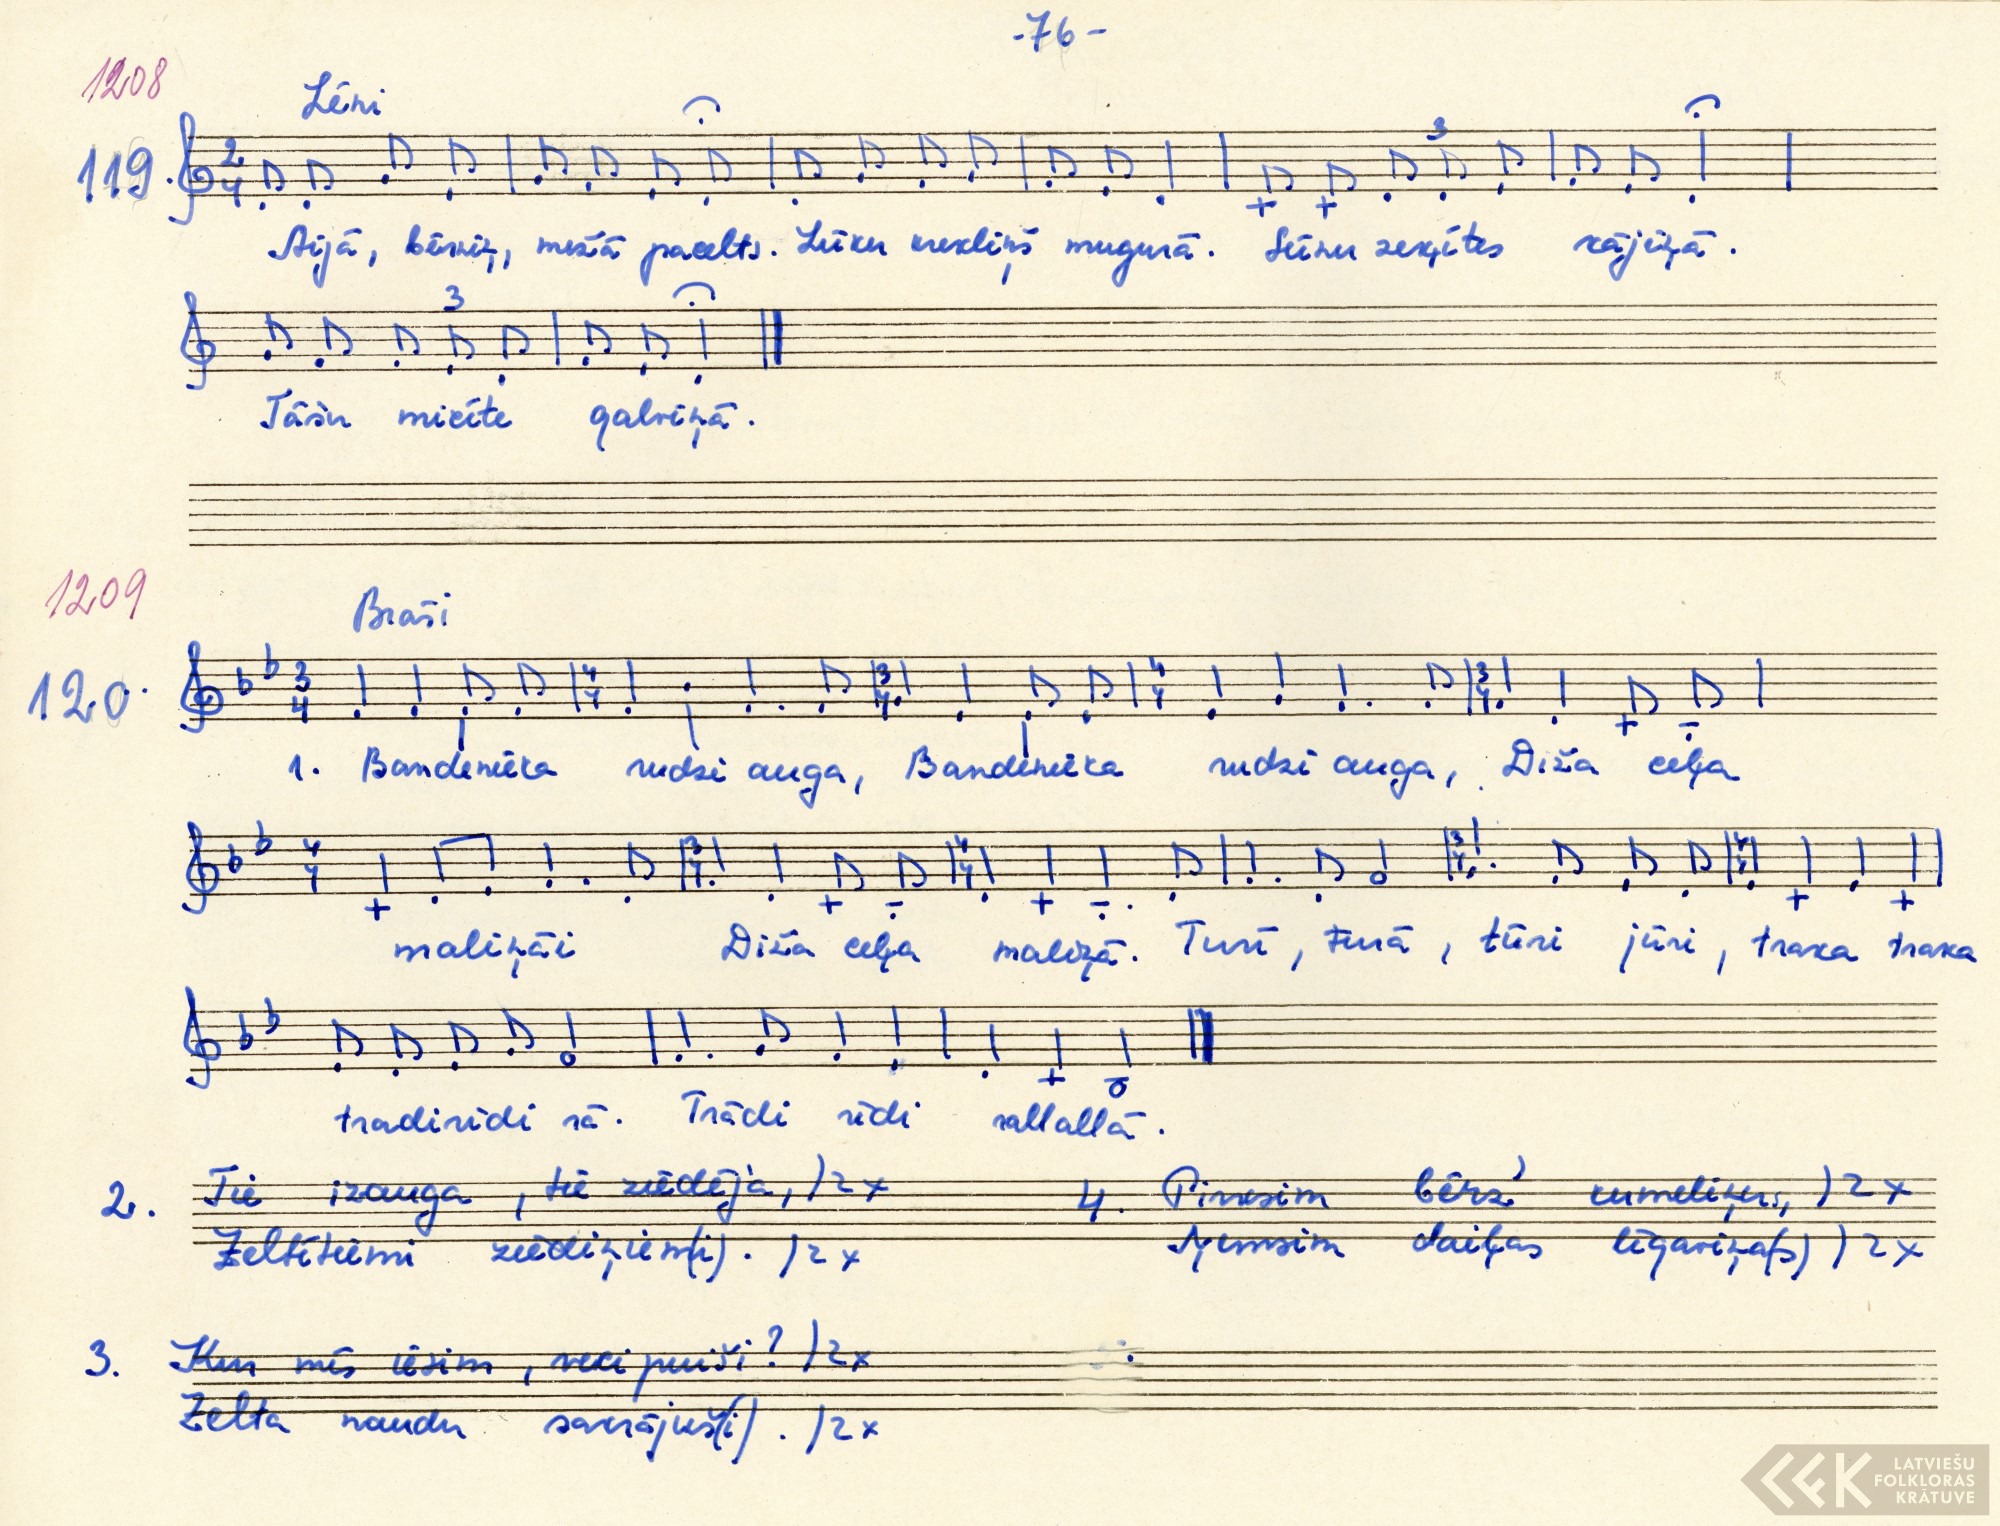 -76-
1208
Lēni
119.
3
Aijā, bērniņ, mežā pacelts. Lūku krekliņš mugurā. Sūnu zeķītes kājiņā.
3
Tāšu micīte galviņā.
1209
Braši
120.
1. Bandenieka rudzi auga, Bandenieka rudzi auga, Diža ceļa
maliņāi Diža ceļa maliņā. Turī, turā, tūri jūri, traka traka
tradiridi rā. Trādi rīdi rallallā.
2. Tie izauga, tie ziedēja, )2x
Zeltītiemi ziediņiem(i). )2x
3. Kur mēs iesim, veci puiši? )2x
Zelta naudu sakrājuš(i). )2x
4. Pirksim bērz' kumeliņus, )2x
Ņemsim daiļas līgaviņa(s) )2x
LATVIEŠU
FOLKLORAS
KRĀTUVE